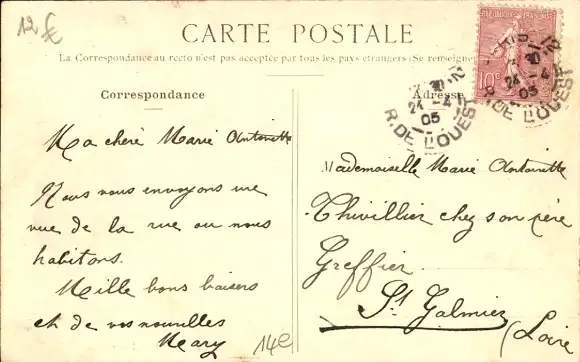 12 €
CARTE POSTALE
La Correspondance au recto n'est pas acceptée par tous les pays étrangers (Se renseigner
Correspondance
Ma chere Marie Antoinette
Nous vous envoyons une
vue de la rue ou nous
habitons.
Mille bons baisers
et de vos nouvelles
Mary
14e
Adresse
Mademoiselle Marie Antoinette
Thivillier chez son père
Greffier
St Galmier
(Loire
REPUBLIQUE FRANÇAISE
10c
24 - 4
05
R. DE L'OUEST
24 - 4
05
R. DE L'OUEST